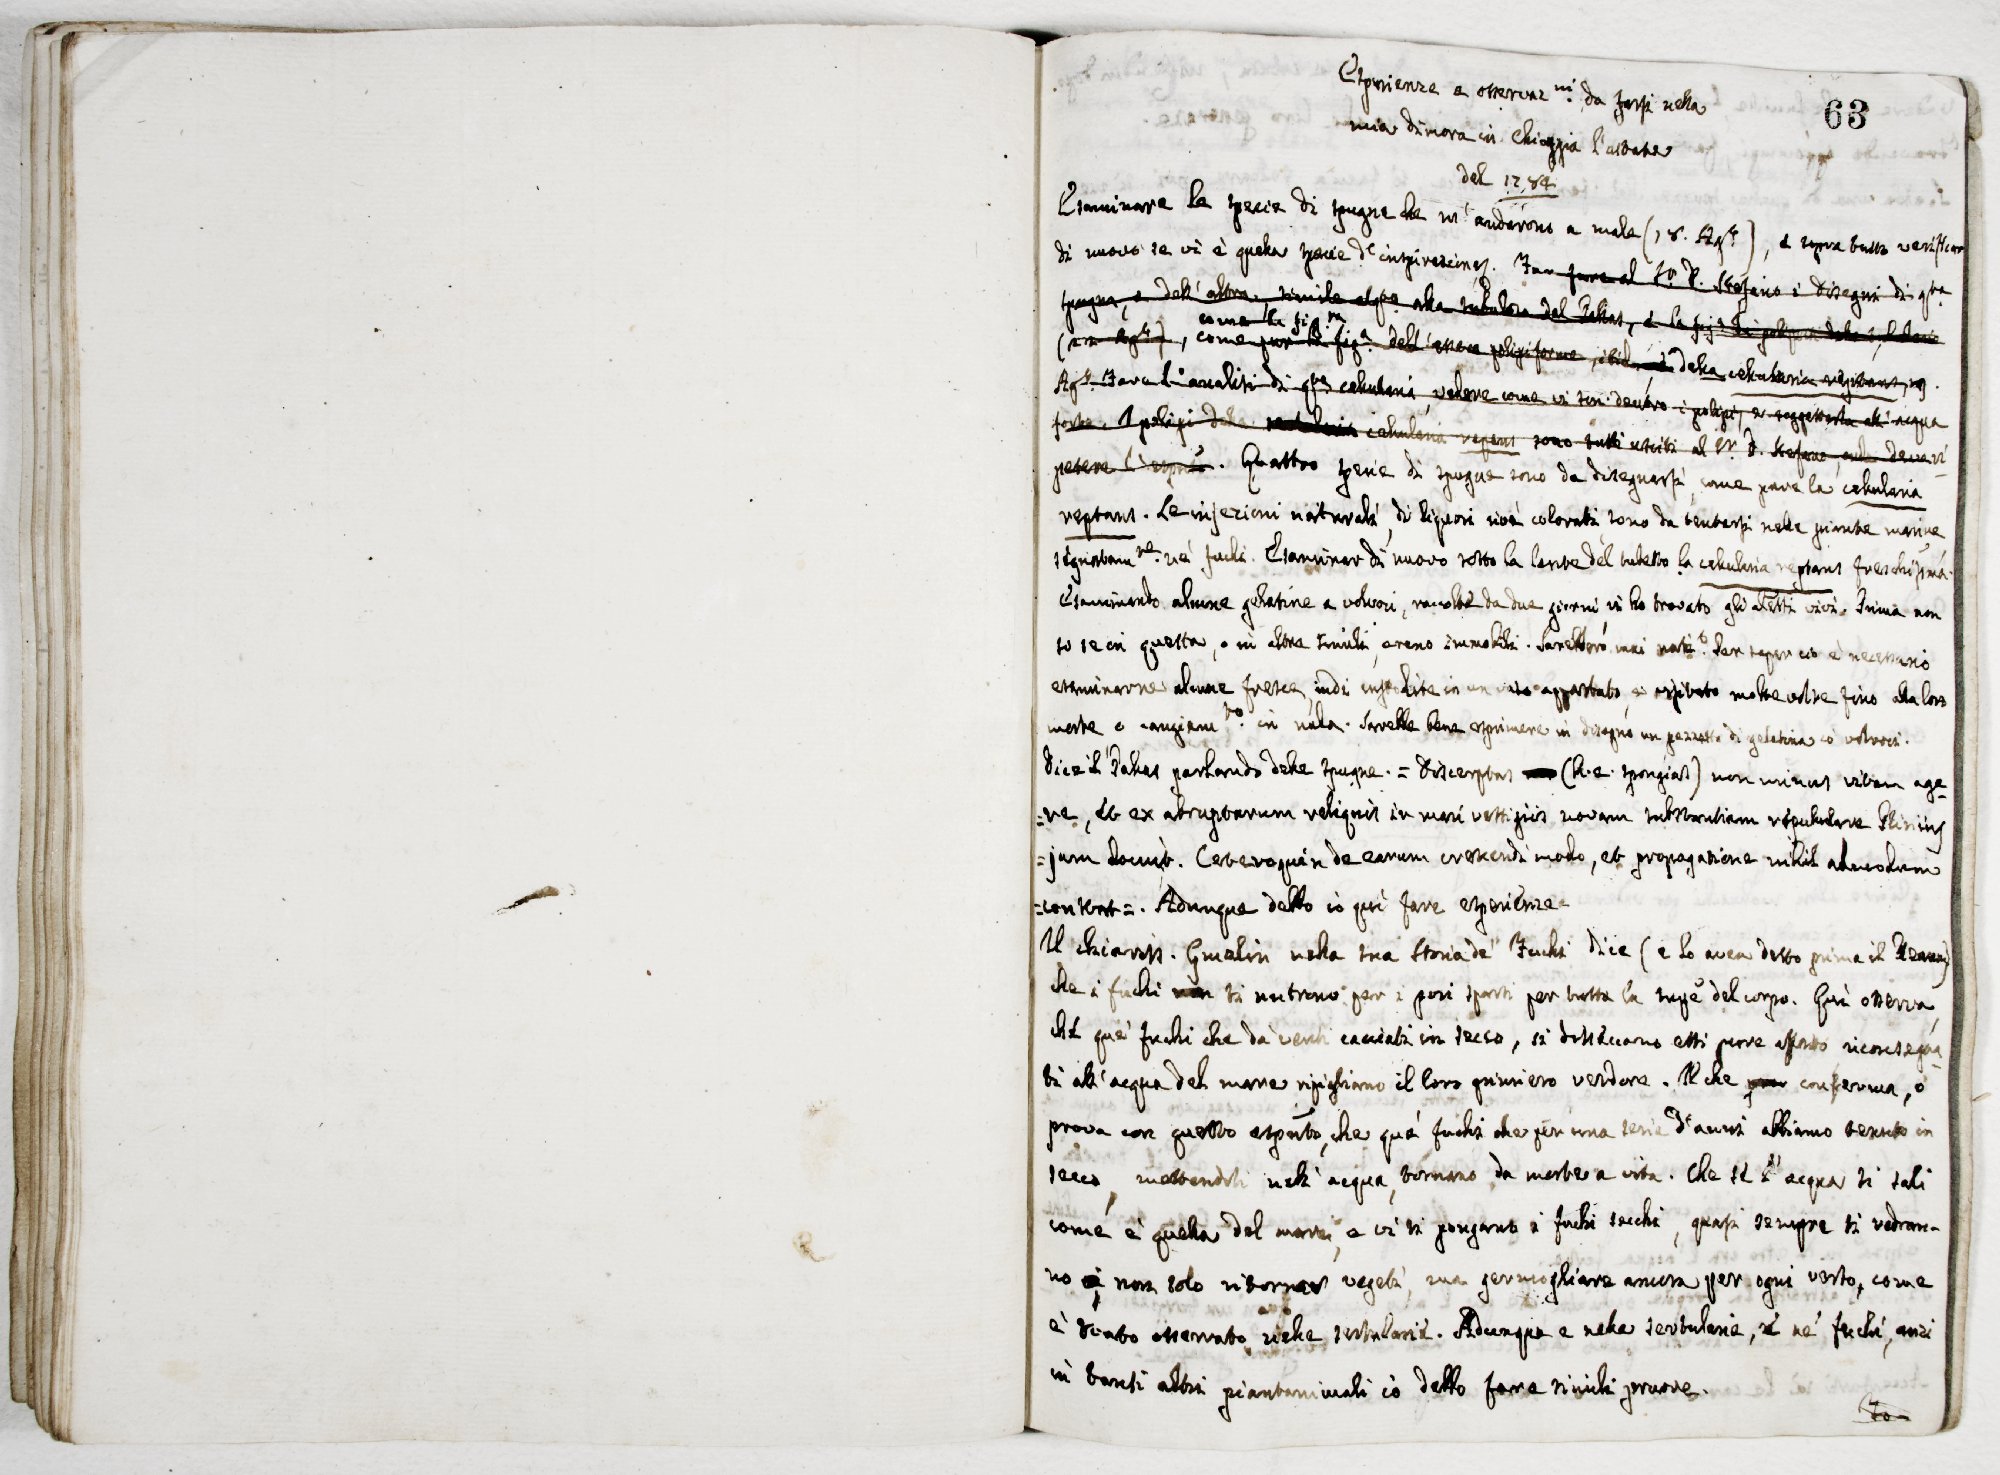 63
Esperienze e osservaz.ni da farsi nella
mia dimora in Chioggia l'estate
del 1784
Esaminare le spezie di spugne che m'andarono a male (18. Ag.to), e sopra tutto verificar
di nuovo se vi è quella spezie d'inspirazione. Far fare al Sr. D. Stefano i disegni di q.ta
spugna, e dell'altra, simile alla tubulosa del Pallas, e la fig.
come la fig.ra
come pur la fig.a dell'ascea poligiforme, della cellularia reptans,
Ag.to. Fare l'analisi di q.ta cellularia, vedere come vi son dentro i polipi, e soggettarla all'acqua
forte. I polipi della sertularia cellularia repens sono tutti usciti al Sr. D. Stefano, onde devesi ri-
petere l'esper.za. Quattro spezie di spugne sono da disegnarsi, come pure la cellularia
reptans. Le injezioni naturali, di liquori cioè colorati, sono da tentarsi nelle piante marine
segnatam.te ne' fuchi. Esaminar di nuovo sotto la lente del tubetto la cellularia reptans freschissima.
Esaminando alcune gelatine a volvoci, raccolte da due giorni, vi ho trovato gli aletti vivi. Prima non
so se in questa, o in altre simili, erano immobili. Sarebbero mai nati? Per saper ciò è necessario
esaminarne alcune fresche, indi custodite in un vaso appartato, e visitato molte volte fino alla loro
morte o cangiam.to in nulla. Sarebbe bene esprimere in disegno un pezzetto di gelatina co' volvoci.
Dice il Pallas parlando delle spugne. = Discerptas (h.e. spongias) non minus vitam age-
=re, et ex abruptarum reliquis in mari vestigiis novam substantiam repullulare Plinius
=jam docuit. Ceteroquin de earum crescendi modo, et propagatione nihil admodum
=constat=. Adunque debbo io quì fare esperienze.
Il chiariss. Gmelin nella sua Storia de' Fuchi dice (e lo avea detto prima il Reaum)
che i fuchi non si nutrono per i pori sparsi per tutta la supe del corpo. Quì osserva,
che que' fuchi che da venti cacciati in secco, si disseccano essi pure affatto riconsegna-
ti all'acqua del mare ripigliano il loro primiero verdore. Il che conferma, o
prova con questo esp.to, che que' fuchi che per una serie d'anni abbiamo tenuto in
secco, mettendoli nell'acqua, tornano da morte a vita. Che se l'acqua si sali
come è quella del mare, e vi si pongano i fuchi secchi, quasi sempre si vedran-
no non solo ritornar vegeti, ma germogliare ancora per ogni verso, come
è stato osservato nelle sertularie. Adunque e nelle sertularie, e ne' fuchi, anzi
in tanti altri piantanimali io debbo fare simili pruove.